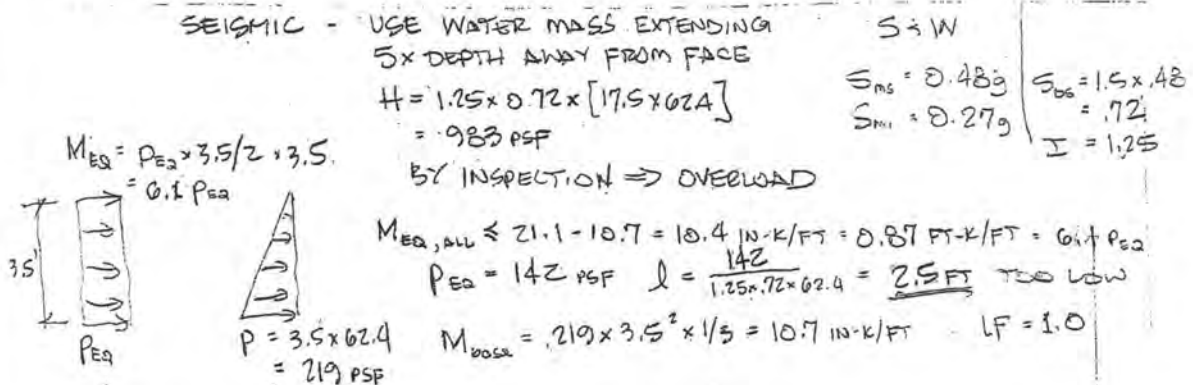 SEISMIC - USE WATER MASS EXTENDING
5X DEPTH AWAY FROM FACE
H = 1.25 x 0.72 x [17.5 x 62.4]
= 983 PSF
BY INSPECTION => OVERLOAD
S & W
Sms = 0.48g
Sm1 = 0.27g
SDS = 1.5 x .48
= .72
I = 1.25
MEQ = PEQ x 3.5/2 x 3.5
= 6.1 PEQ
3.5'
PEQ
P = 3.5 x 62.4
= 219 PSF
MEQ, ALL ≤ 21.1 - 10.7 = 10.4 IN-K/FT = 0.87 FT-K/FT = 6.1 PEQ
PEQ = 142 PSF l = 142 / 1.25x.72x62.4 = 2.5 FT TOO LOW
Mbase = .219 x 3.5² x 1/3 = 10.7 IN-K/FT LF = 1.0